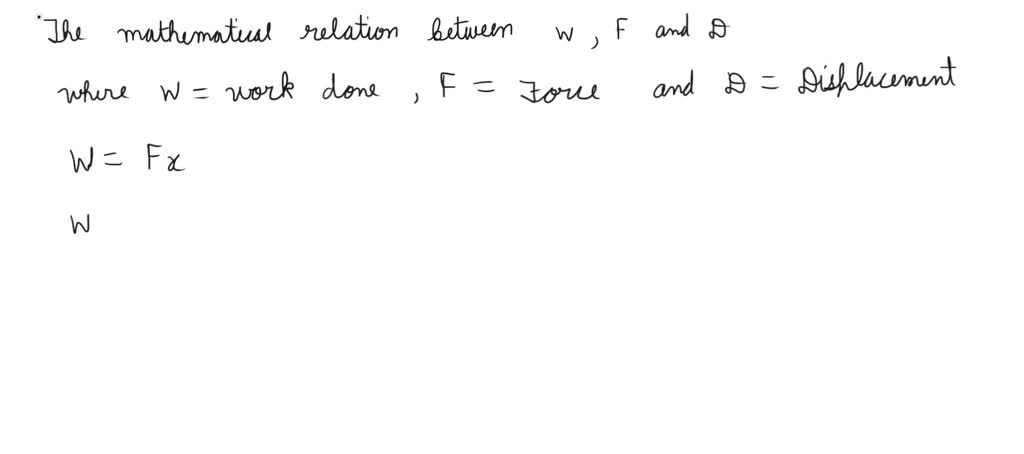 The mathematical relation between W, F and D
where W = work done, F = Force and D = Displacement
W = Fx
W